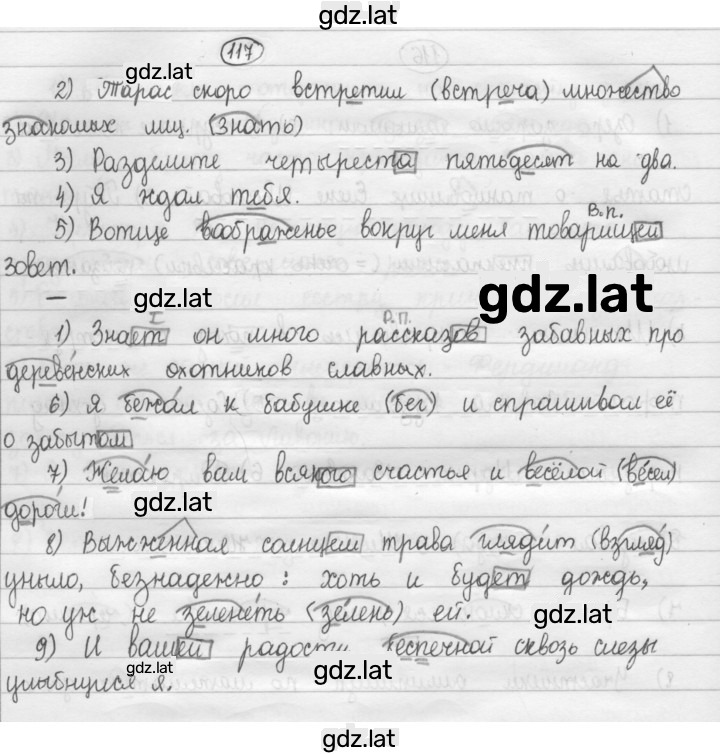 gdz.lat
117
gdz.lat
2) Тарас скоро встретил (встреча) множество
знакомых лиц. (Знать)
gdz.lat
3) Разделите четыреста пятьдесят на два.
4) Я ждал тебя.
gdz.lat
В.п.
5) Вотще воображенье вокруг меня товарищей
зовет.
—
gdz.lat
gdz.lat
I Р.П.
1) Знает он много рассказов забавных про
деревенских охотников славных.
gdz.lat
6) Я бежал к бабушке (бег) и спрашивал её
о забытом
7) Желаю вам всякого счастья и весёлой (весел)
дороги!
gdz.lat
gdz.lat
8) Выжженная солнцем трава глядит (взгляд)
уныло, безнадежно: хоть и будет дождь,
но уж не зеленеть (зелень) ей.
gdz.lat
9) И вашей радости беспечной сквозь слезы
gdz.lat
gdz.lat
улыбнулся я.
gdz.lat